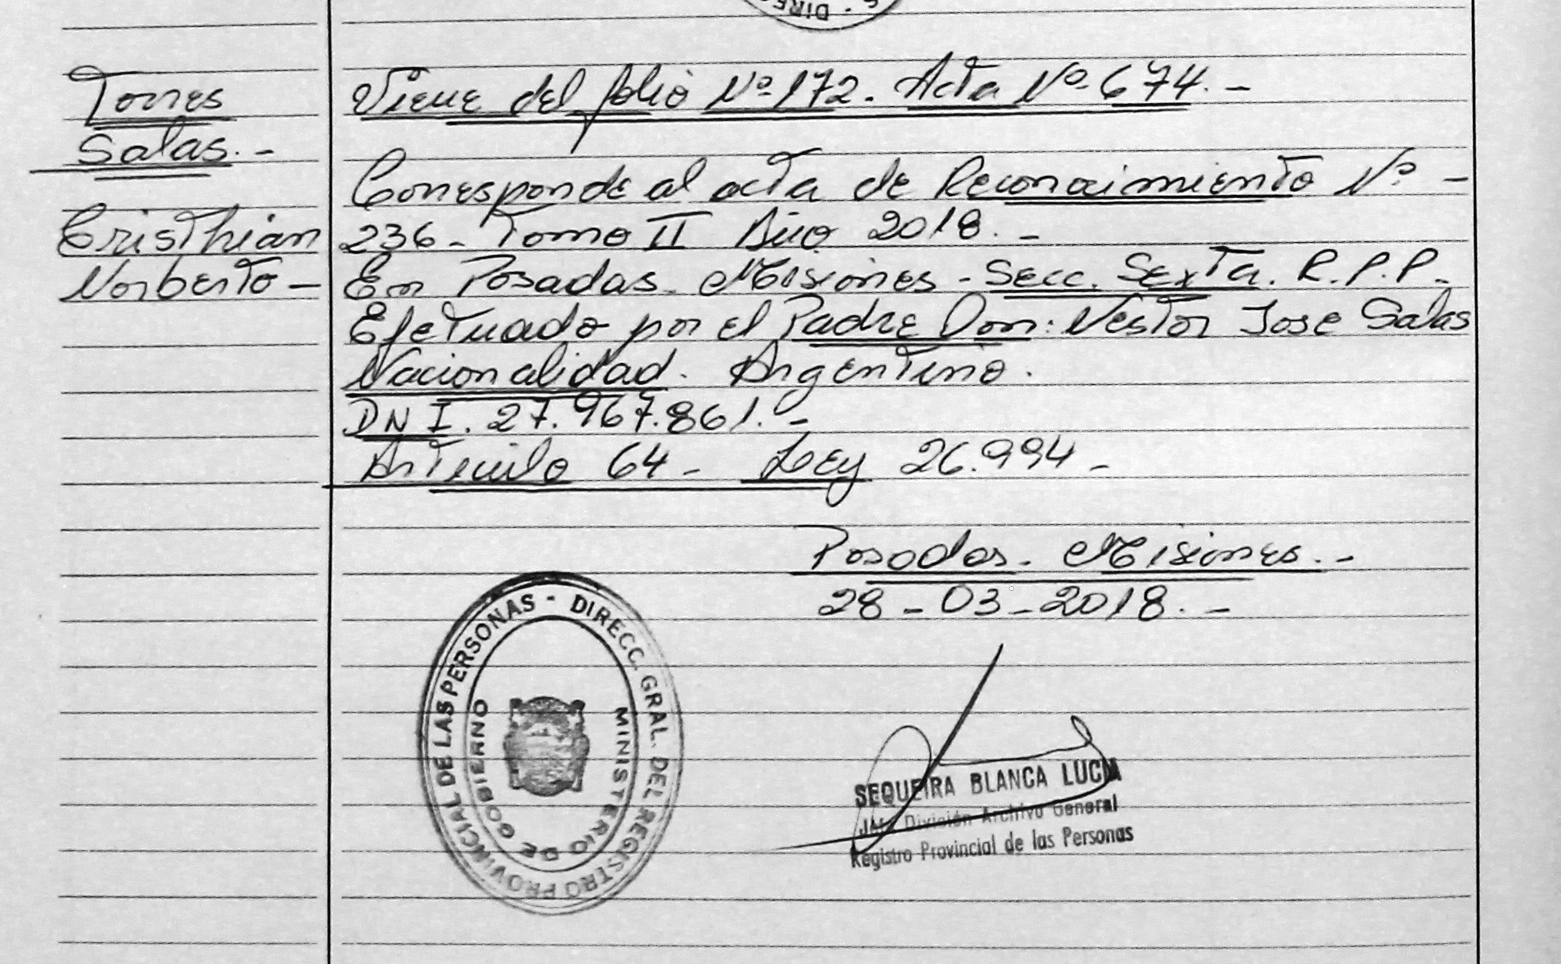 Torres
Salas.-
Cristhian
Norberto-
Viene del folio Nº 172. Acta Nº 674.-
Corresponde al acta de Reconocimiento Nº -
236- Tomo II Año 2018.-
En Posadas- Misiones- Secc. Sexta. R.P.P.-
Efetuado por el Padre Don: Nestor Jose Salas
Nacionalidad. Argentino.
DNI. 27.967.861.-
Articulo 64- Ley 26.994-
Posadas- Misiones.-
28-03-2018.-
DIRECC. GRAL. DEL REGISTRO PROVINCIAL DE LAS PERSONAS -
MINISTERIO DE GOBIERNO
SEQUEIRA BLANCA LUCIA
División Archivo General
Registro Provincial de las Personas